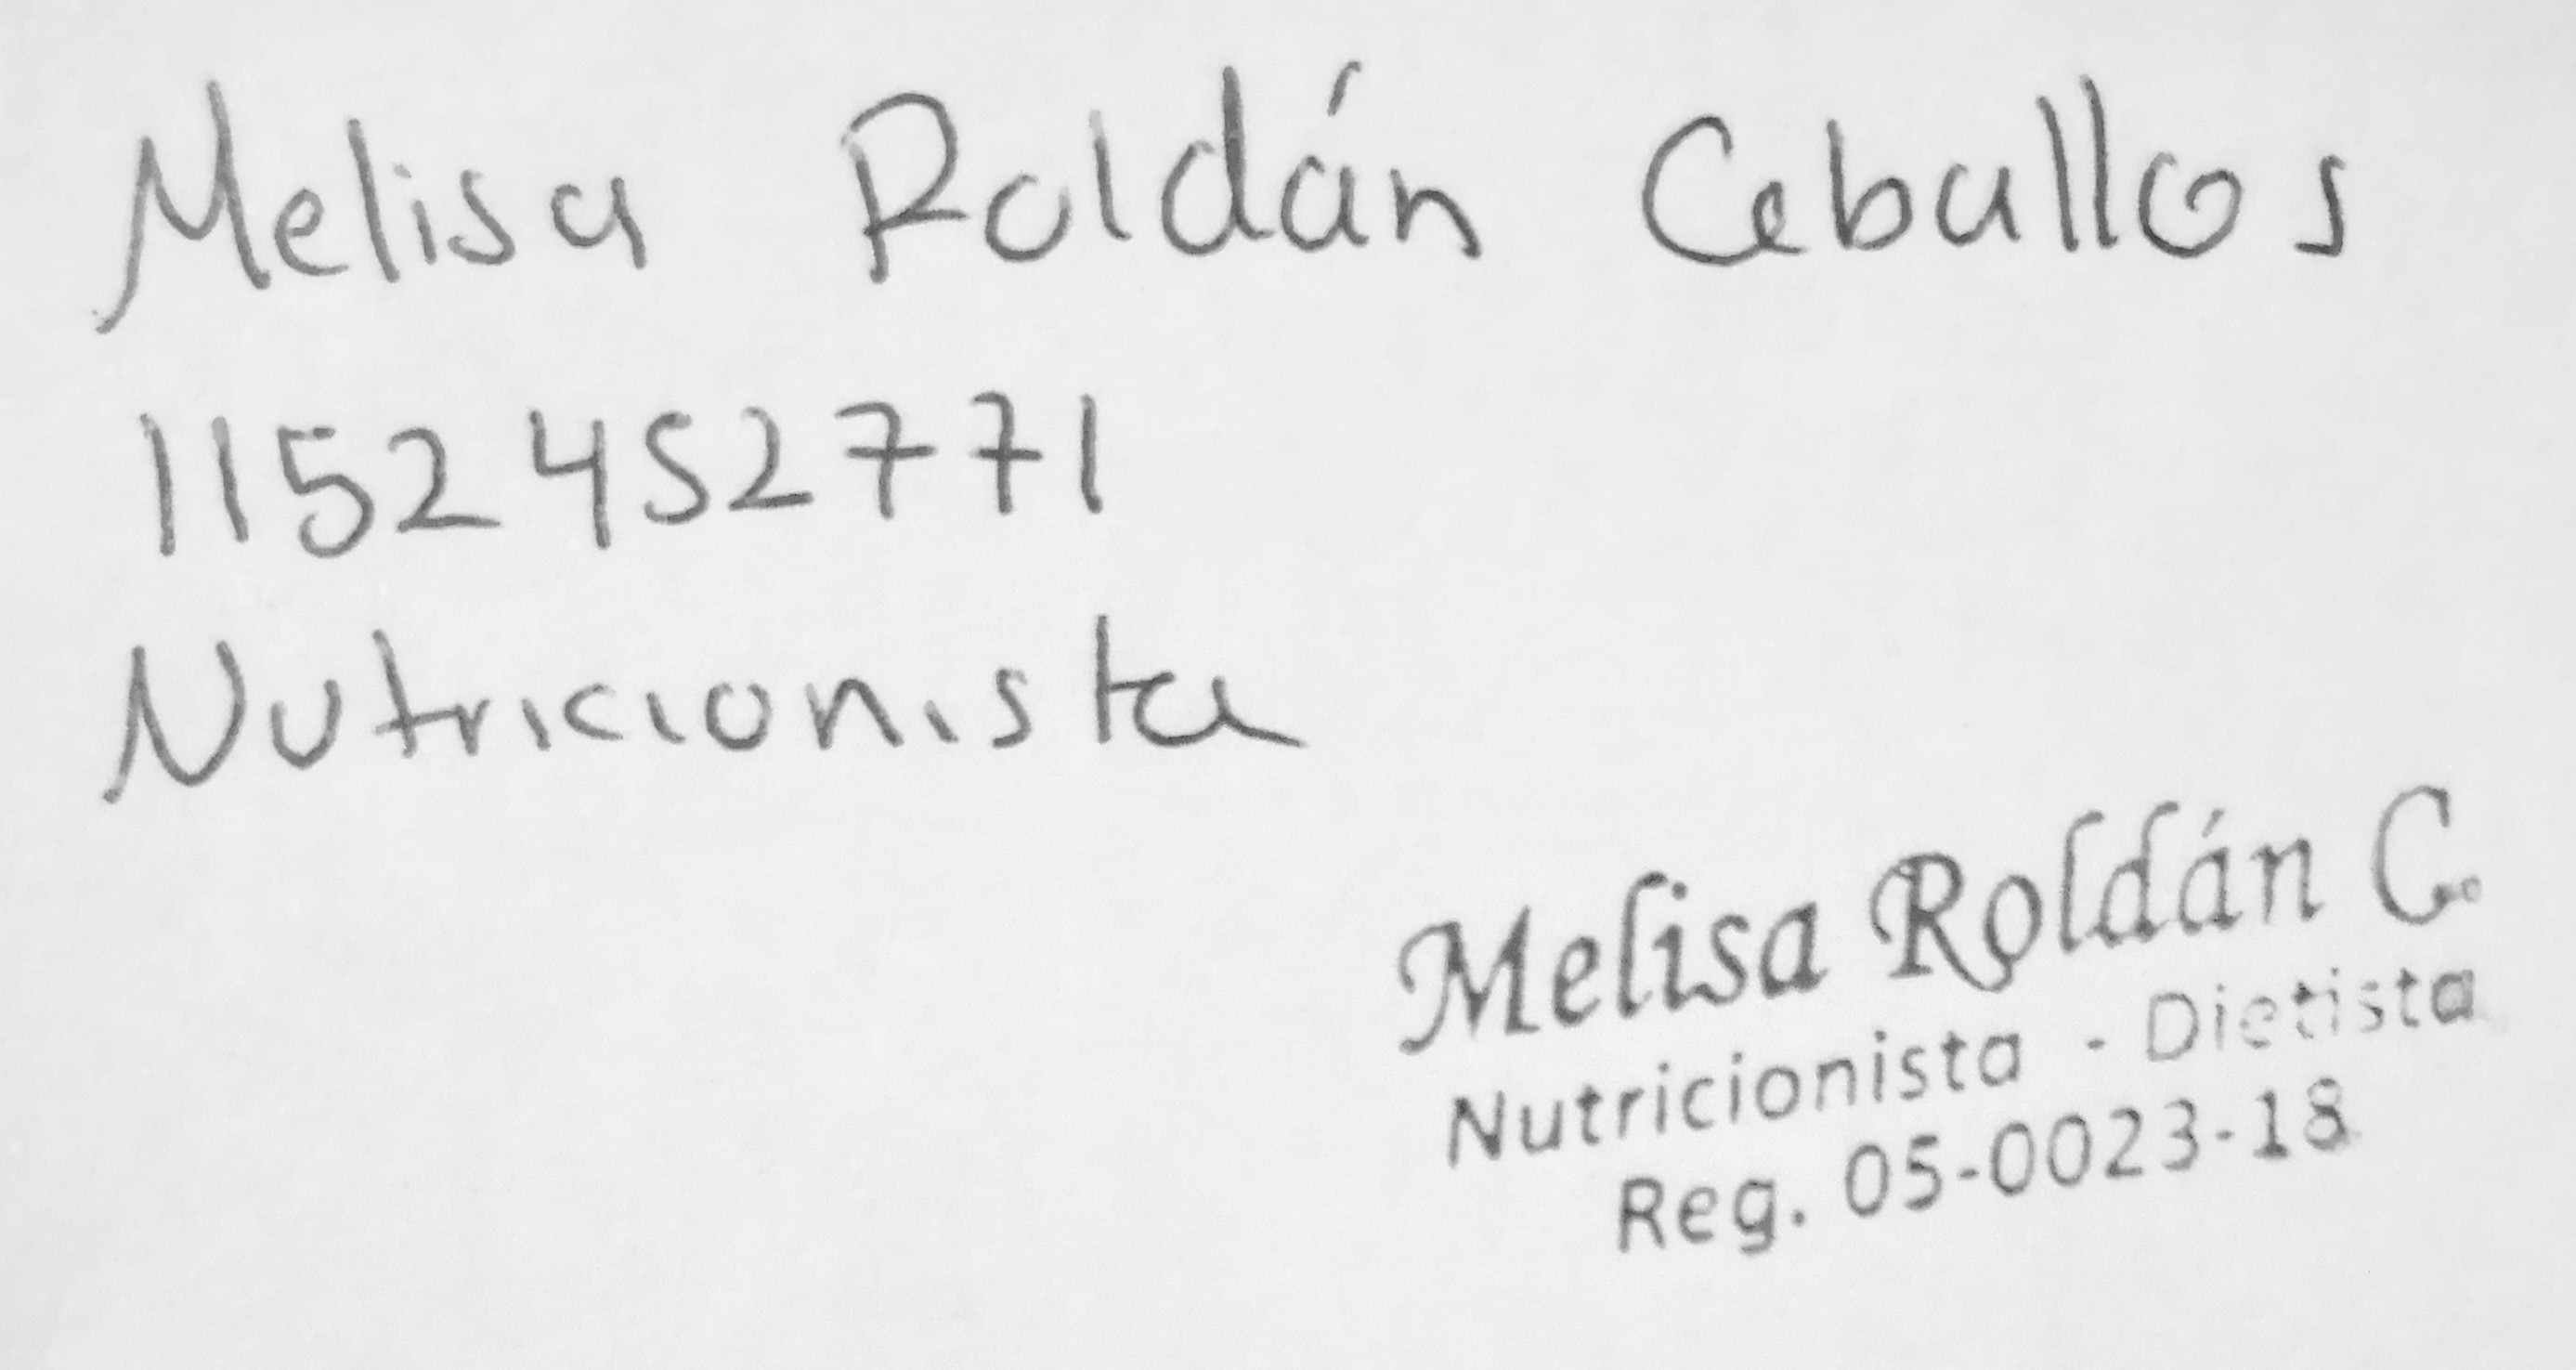 Melisa Roldán Ceballos
1152452771
Nutricionista
Melisa Roldán C.
Nutricionista - Dietista
Reg. 05-0023-18